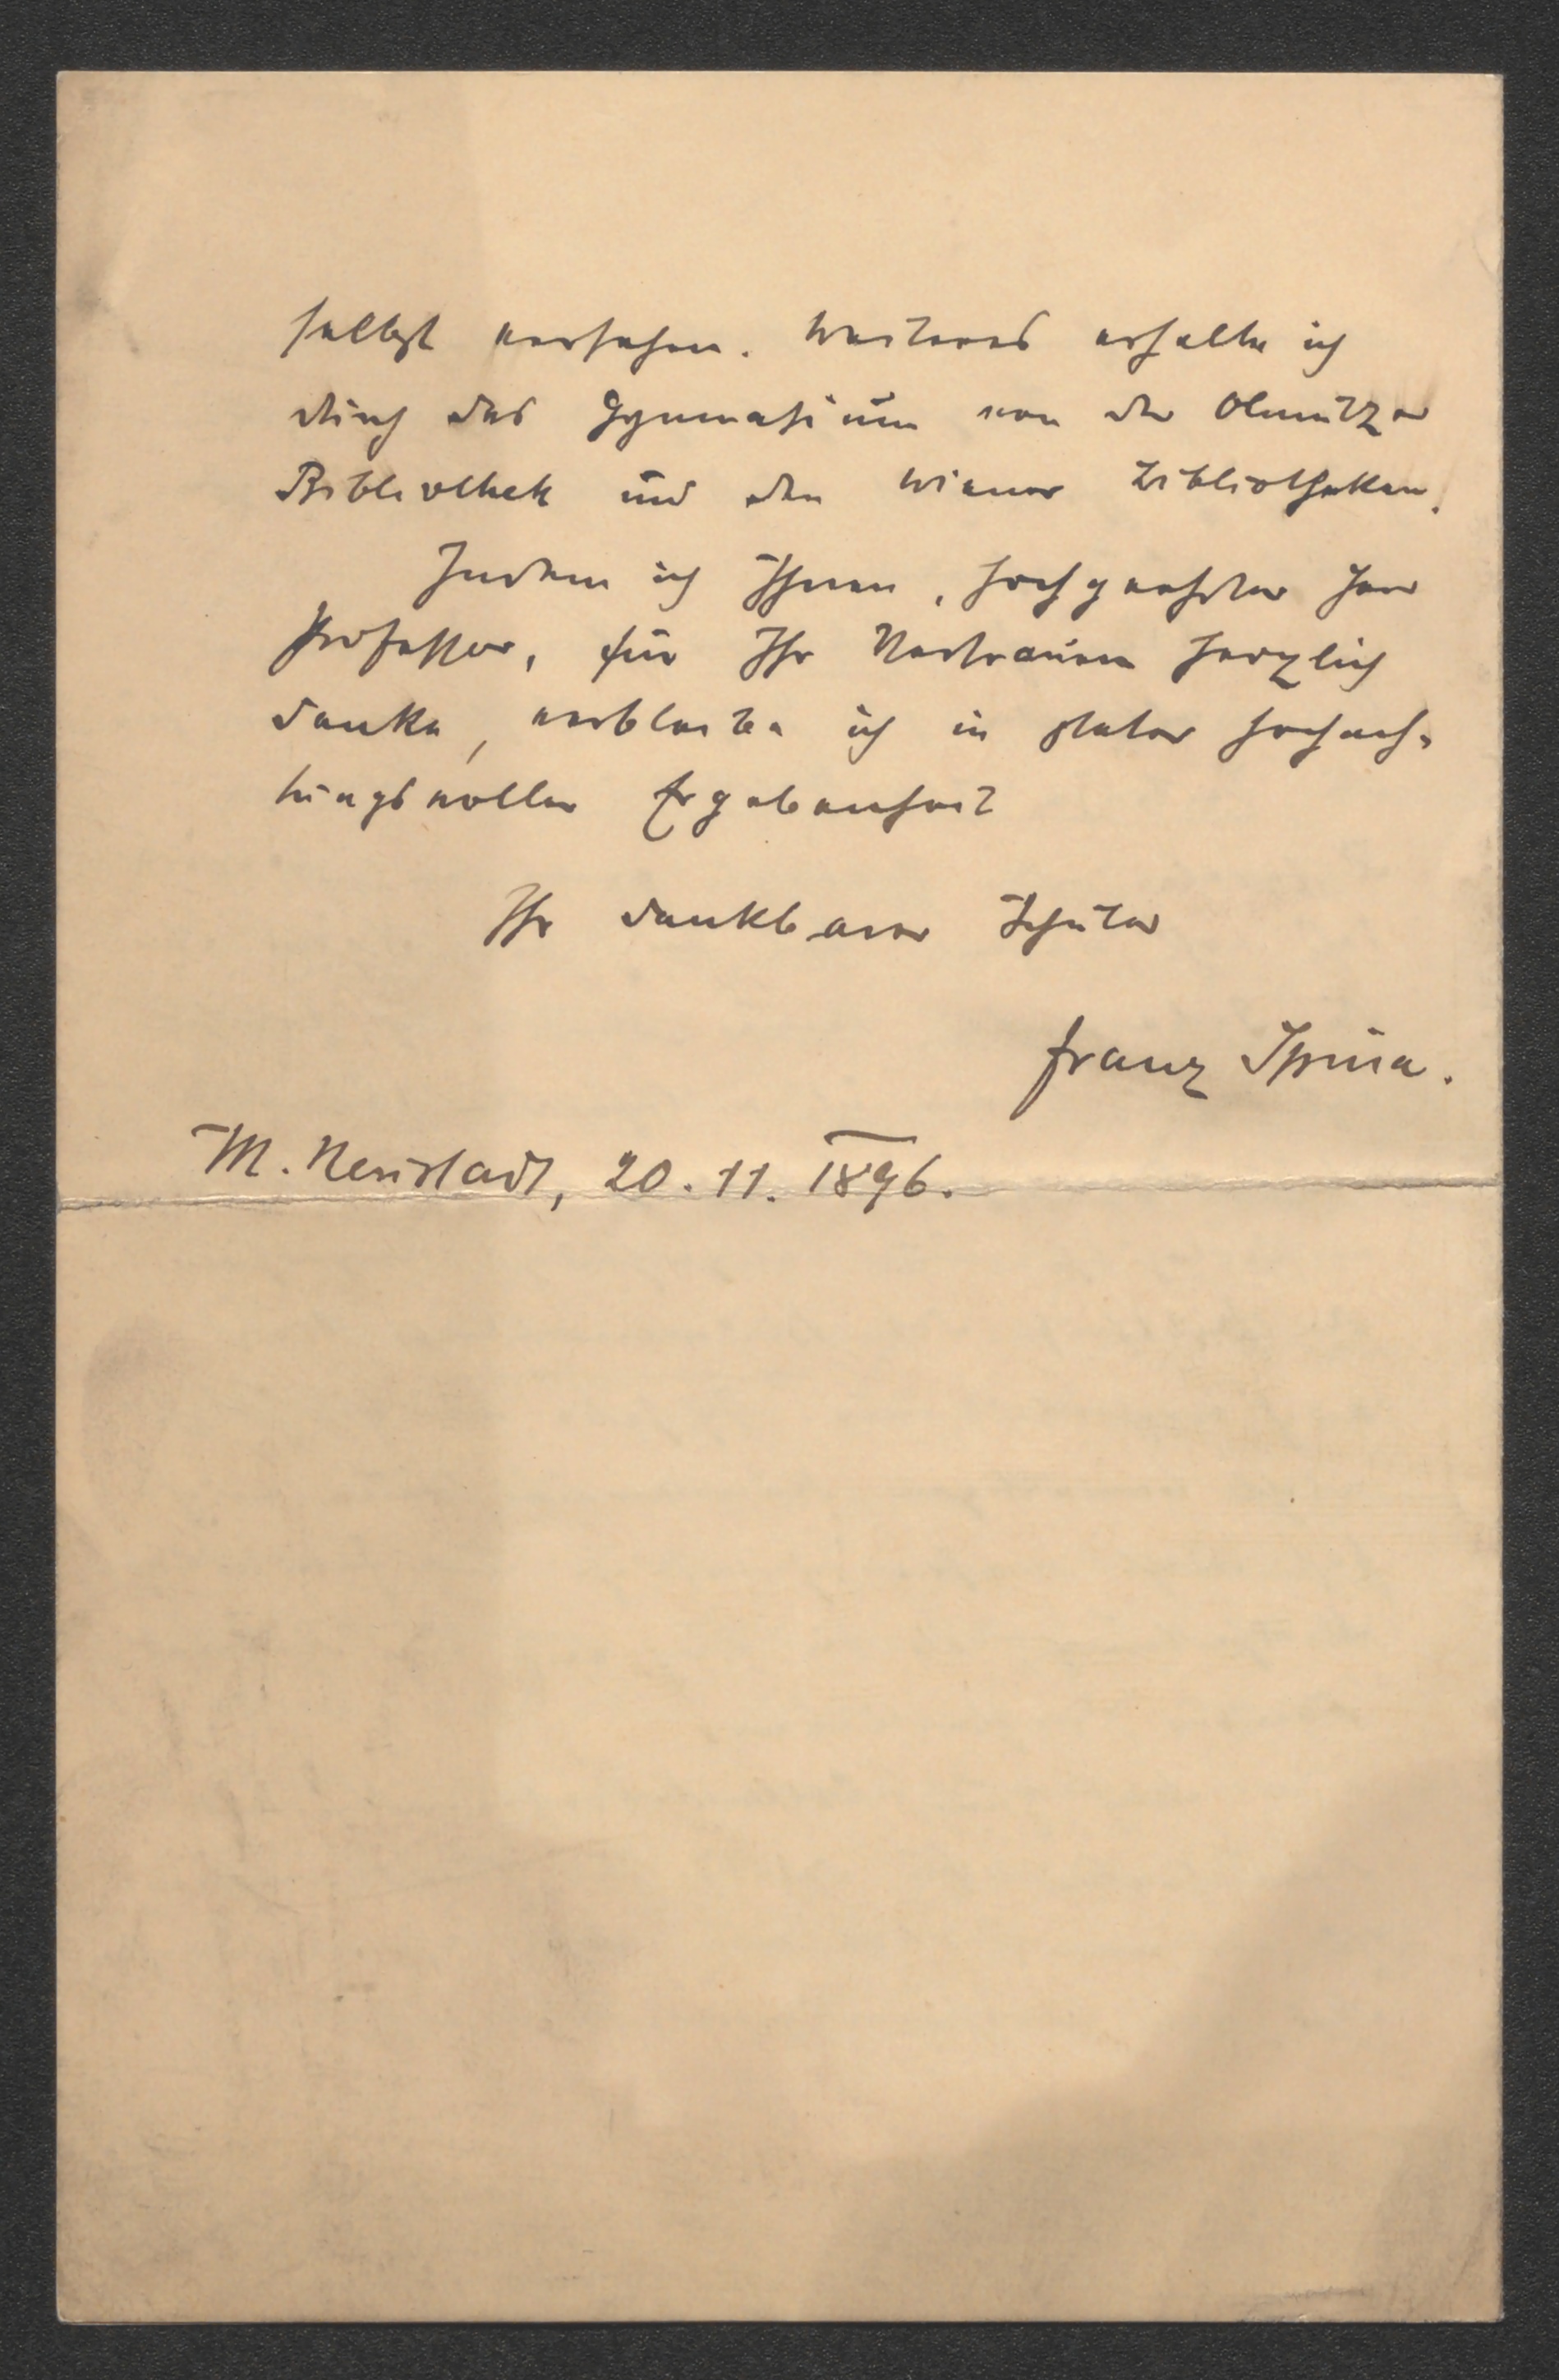 selbst versehen. Weiteres erhalte ich
durch das Gymnasium von der Olmützer
Bibliothek und den Wiener Bibliotheken.
Indem ich Ihnen, hochgeehrter Herr
Professor, für Ihr Vertrauen herzlich
danke, verbleibe ich in steter hochach-
tungsvoller Ergebenheit
Ihr dankbarer Schüler
Franz Spina.
M. Neustadt, 20. 11. 1896.